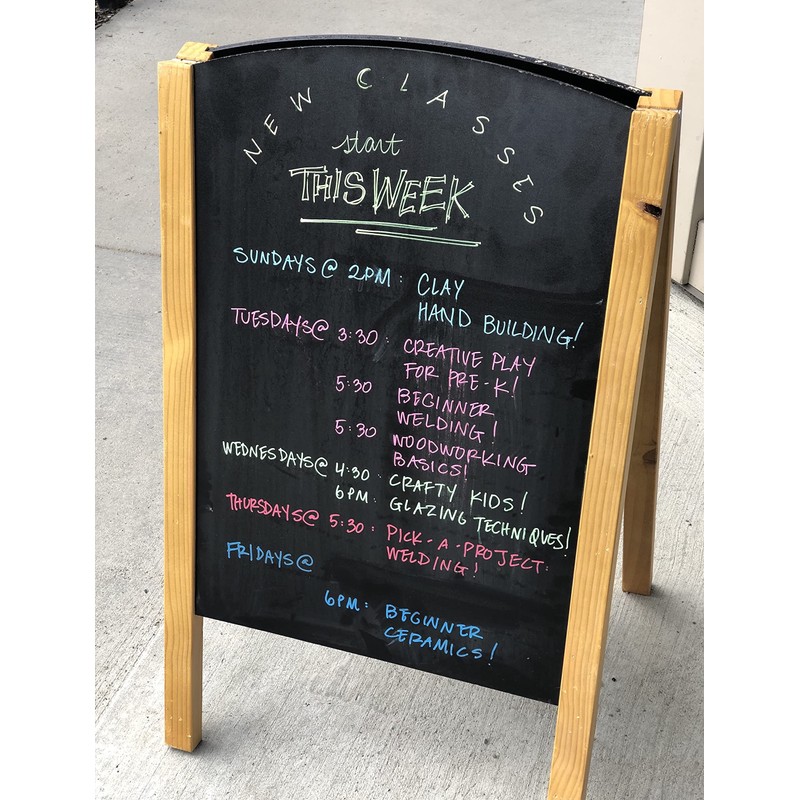 NEW CLASSES
start
THIS WEEK
SUNDAYS @ 2PM: CLAY
HAND BUILDING!
TUESDAYS @ 3:30: CREATIVE PLAY
FOR PRE-K!
5:30 BEGINNER
WELDING!
5:30 WOODWORKING
BASICS!
WEDNESDAYS @ 4:30: CRAFTY KIDS!
6PM: GLAZING TECHNIQUES!
THURSDAYS @ 5:30: PICK-A-PROJECT:
WELDING!
FRIDAYS @
6PM: BEGINNER
CERAMICS!